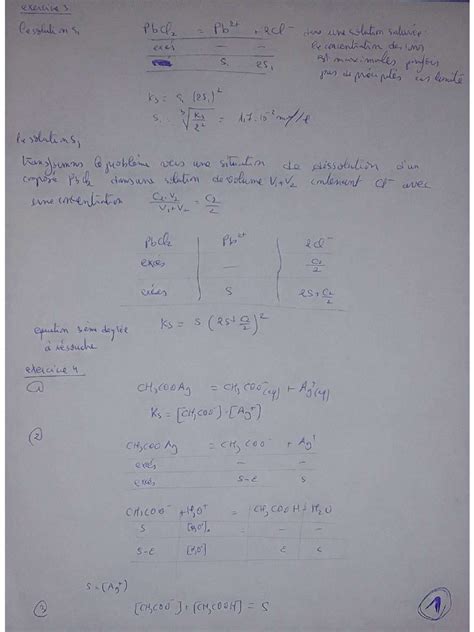 exercice 3
la solution S1
PbCl2 = Pb2+ + 2Cl- dans une solution saturée
excés — — la concentration des ions
excés S1 2S1 est maximales
pas de précipités cas limité
Ks = S1 (2S1)²
S1 = ∛(Ks/2²) = 1,7·10⁻² mol/l
la solution S2
transformons le problème vers une situation de dissolution d'un
composé PbCl2 dans une solution de volume V1+V2 contenant Cl- avec
une concentration C2·V2/(V1+V2) = C2/2
PbCl2 | Pb2+ | 2Cl-
excés | — | C2/2
excés | S | 2S+C2/2
Ks = S (2S+C2/2)²
equation 3ème degrée
à résoudre
exercice 4
①
CH3COOAg = CH3COO-(aq) + Ag+(aq)
Ks = [CH3COO-]·[Ag+]
②
CH3COOAg = CH3COO- + Ag+
excés — —
excés S-ε S
CH3COO- + H3O+ = CH3COOH + H2O
S [H3O+]0 — —
S-ε [H3O+] ε ε
S = [Ag+]
③
[CH3COO-] + [CH3COOH] = S
1